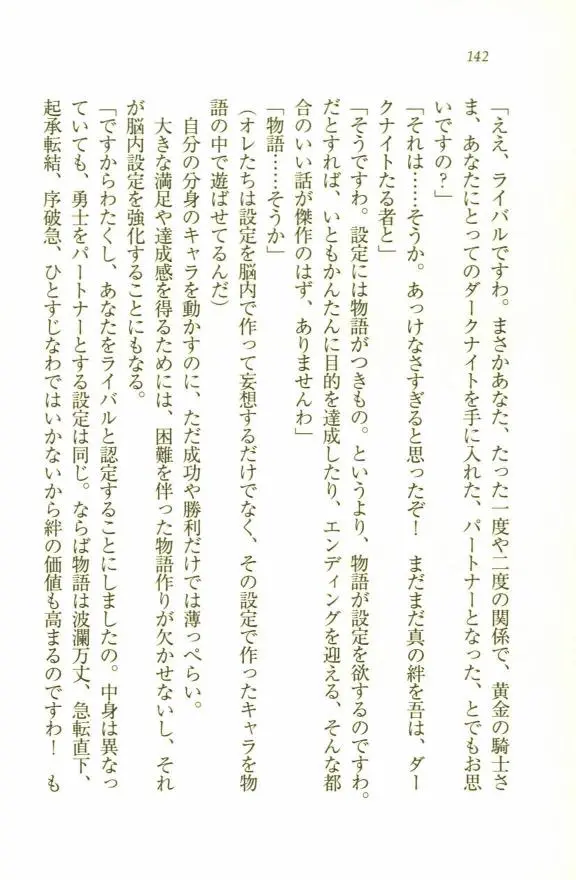 142
「ええ、ライバルですわ。まさかあなた、たった一度や二度の関係で、黄金の騎士さ
ま、あなたにとってのダークナイトを手に入れた、パートナーとなった、とでもお思
いですの？」
「それは……そうか。あっけなさすぎると思ったぞ！　まだまだ真の絆を吾は、ダー
クナイトたる者と」
「そうですわ。設定には物語がつきもの。というより、物語が設定を欲するのですわ。
だとすれば、いともかんたんに目的を達成したり、エンディングを迎える、そんな都
合のいい話が傑作のはず、ありませんわ」
「物語……そうか」
（オレたちは設定を脳内で作って妄想するだけでなく、その設定で作ったキャラを物
語の中で遊ばせてるんだ）
自分の分身のキャラを動かすのに、ただ成功や勝利だけでは薄っぺらい。
大きな満足や達成感を得るためには、困難を伴った物語作りが欠かせないし、それ
が脳内設定を強化することにもなる。
「ですからわたくし、あなたをライバルと認定することにしましたの。中身は異なっ
ていても、勇士をパートナーとする設定は同じ。ならば物語は波瀾万丈、急転直下、
起承転結、序破急、ひとすじなわではいかないから絆の価値も高まるのですわ！　も